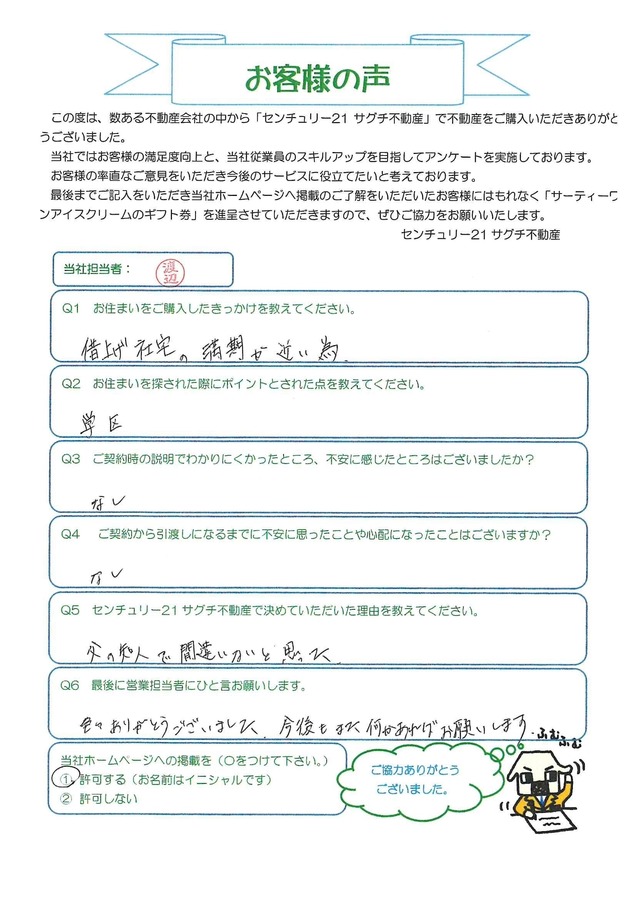 お客様の声
この度は、数ある不動産会社の中から「センチュリー21 サグチ不動産」で不動産をご購入いただきありがと
うございました。
当社ではお客様の満足度向上と、当社従業員のスキルアップを目指してアンケートを実施しております。
お客様の率直なご意見をいただき今後のサービスに役立てたいと考えております。
最後までご記入をいただき当社ホームページへ掲載のご了解をいただいたお客様にはもれなく「サーティーワ
ンアイスクリームのギフト券」を進呈させていただきますので、ぜひご協力をお願いいたします。
センチュリー21 サグチ不動産
当社担当者： 渡辺
Q1 お住まいをご購入したきっかけを教えてください。
借上げ社宅の満期が近い為.
Q2 お住まいを探された際にポイントとされた点を教えてください。
学区
Q3 ご契約時の説明でわかりにくかったところ、不安に感じたところはございましたか？
なし
Q4 ご契約から引渡しになるまでに不安に思ったことや心配になったことはございますか？
なし
Q5 センチュリー21 サグチ不動産で決めていただいた理由を教えてください。
父の知人で間違いないと思った.
Q6 最後に営業担当者にひと言お願いします。
色々ありがとうございました. 今後もまた何かあればお願いします.
ふむふむ
当社ホームページへの掲載を（○をつけて下さい。）
① 許可する（お名前はイニシャルです）
② 許可しない
ご協力ありがとう
ございました。